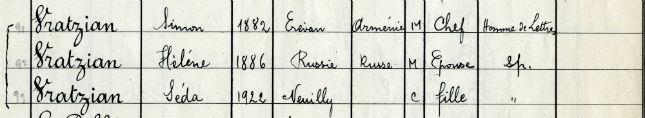 91 Vratzian Simon 1882 Erévan Arménie M Chef Homme de Lettres
92 Vratzian Hélène 1886 Russie Russe M Epouse Sp.
93 Vratzian Séda 1922 Neuilly C fille "